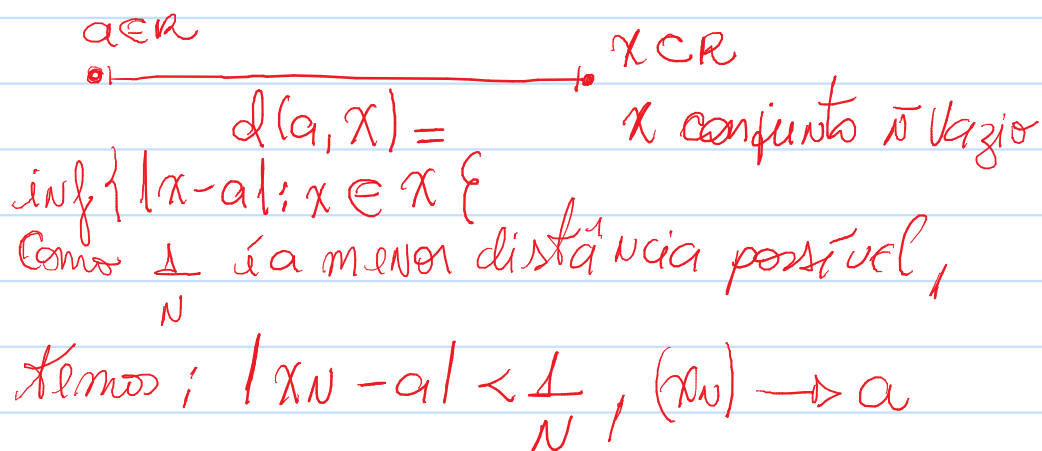 a∈R
X⊂R
d(a, X) =
X conjunto ñ vazio
inf{|x-a|: x ∈ X}
Como 1/N é a menor distância possível,
temos: |xN - a| < 1/N, (xN) → a